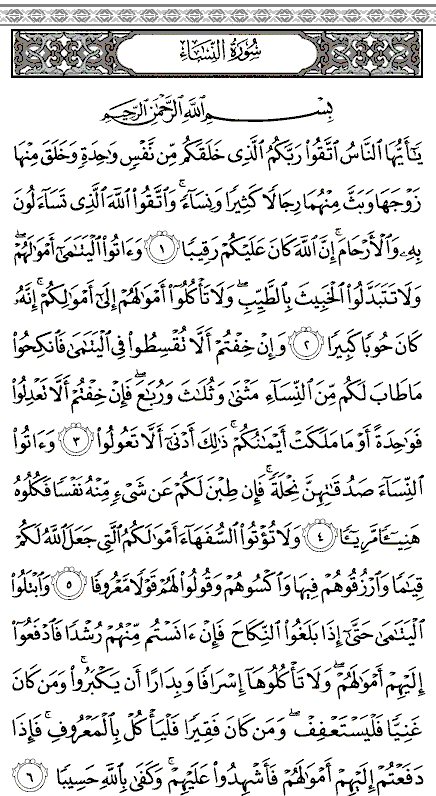 سُورَةُ النِّسَاءِ
بِسْمِ اللَّهِ الرَّحْمَٰنِ الرَّحِيمِ
يَٰٓأَيُّهَا ٱلنَّاسُ ٱتَّقُوا۟ رَبَّكُمُ ٱلَّذِى خَلَقَكُم مِّن نَّفْسٍ وَٰحِدَةٍ وَخَلَقَ مِنْهَا
زَوْجَهَا وَبَثَّ مِنْهُمَا رِجَالًا كَثِيرًا وَنِسَآءً ۚ وَٱتَّقُوا۟ ٱللَّهَ ٱلَّذِى تَسَآءَلُونَ
بِهِۦ وَٱلْأَرْحَامَ ۚ إِنَّ ٱللَّهَ كَانَ عَلَيْكُمْ رَقِيبًا ١ وَءَاتُوا۟ ٱلْيَتَٰمَىٰٓ أَمْوَٰلَهُمْ ۖ
وَلَا تَتَبَدَّلُوا۟ ٱلْخَبِيثَ بِٱلطَّيِّبِ ۖ وَلَا تَأْكُلُوٓا۟ أَمْوَٰلَهُمْ إِلَىٰٓ أَمْوَٰلِكُمْ ۚ إِنَّهُۥ
كَانَ حُوبًا كَبِيرًا ٢ وَإِنْ خِفْتُمْ أَلَّا تُقْسِطُوا۟ فِى ٱلْيَتَٰمَىٰ فَٱنكِحُوا۟
مَا طَابَ لَكُم مِّنَ ٱلنِّسَآءِ مَثْنَىٰ وَثُلَٰثَ وَرُبَٰعَ ۖ فَإِنْ خِفْتُمْ أَلَّا تَعْدِلُوا۟
فَوَٰحِدَةً أَوْ مَا مَلَكَتْ أَيْمَٰنُكُمْ ۚ ذَٰلِكَ أَدْنَىٰٓ أَلَّا تَعُولُوا۟ ٣ وَءَاتُوا۟
ٱلنِّسَآءَ صَدُقَٰتِهِنَّ نِحْلَةً ۚ فَإِن طِبْنَ لَكُمْ عَن شَىْءٍ مِّنْهُ نَفْسًا فَكُلُوهُ
هَنِيٓـًٔا مَّرِيٓـًٔا ٤ وَلَا تُؤْتُوا۟ ٱلسُّفَهَآءَ أَمْوَٰلَكُمُ ٱلَّتِى جَعَلَ ٱللَّهُ لَكُمْ
قِيَٰمًا وَٱرْزُقُوهُمْ فِيهَا وَٱكْسُوهُمْ وَقُولُوا۟ لَهُمْ قَوْلًا مَّعْرُوفًا ٥ وَٱبْتَلُوا۟
ٱلْيَتَٰمَىٰ حَتَّىٰٓ إِذَا بَلَغُوا۟ ٱلنِّكَاحَ فَإِنْ ءَانَسْتُم مِّنْهُمْ رُشْدًا فَٱدْفَعُوٓا۟
إِلَيْهِمْ أَمْوَٰلَهُمْ ۖ وَلَا تَأْكُلُوهَآ إِسْرَافًا وَبِدَارًا أَن يَكْبَرُوا۟ ۚ وَمَن كَانَ
غَنِيًّا فَلْيَسْتَعْفِفْ ۖ وَمَن كَانَ فَقِيرًا فَلْيَأْكُلْ بِٱلْمَعْرُوفِ ۚ فَإِذَا
دَفَعْتُمْ إِلَيْهِمْ أَمْوَٰلَهُمْ فَأَشْهِدُوا۟ عَلَيْهِمْ ۚ وَكَفَىٰ بِٱللَّهِ حَسِيبًا ٦